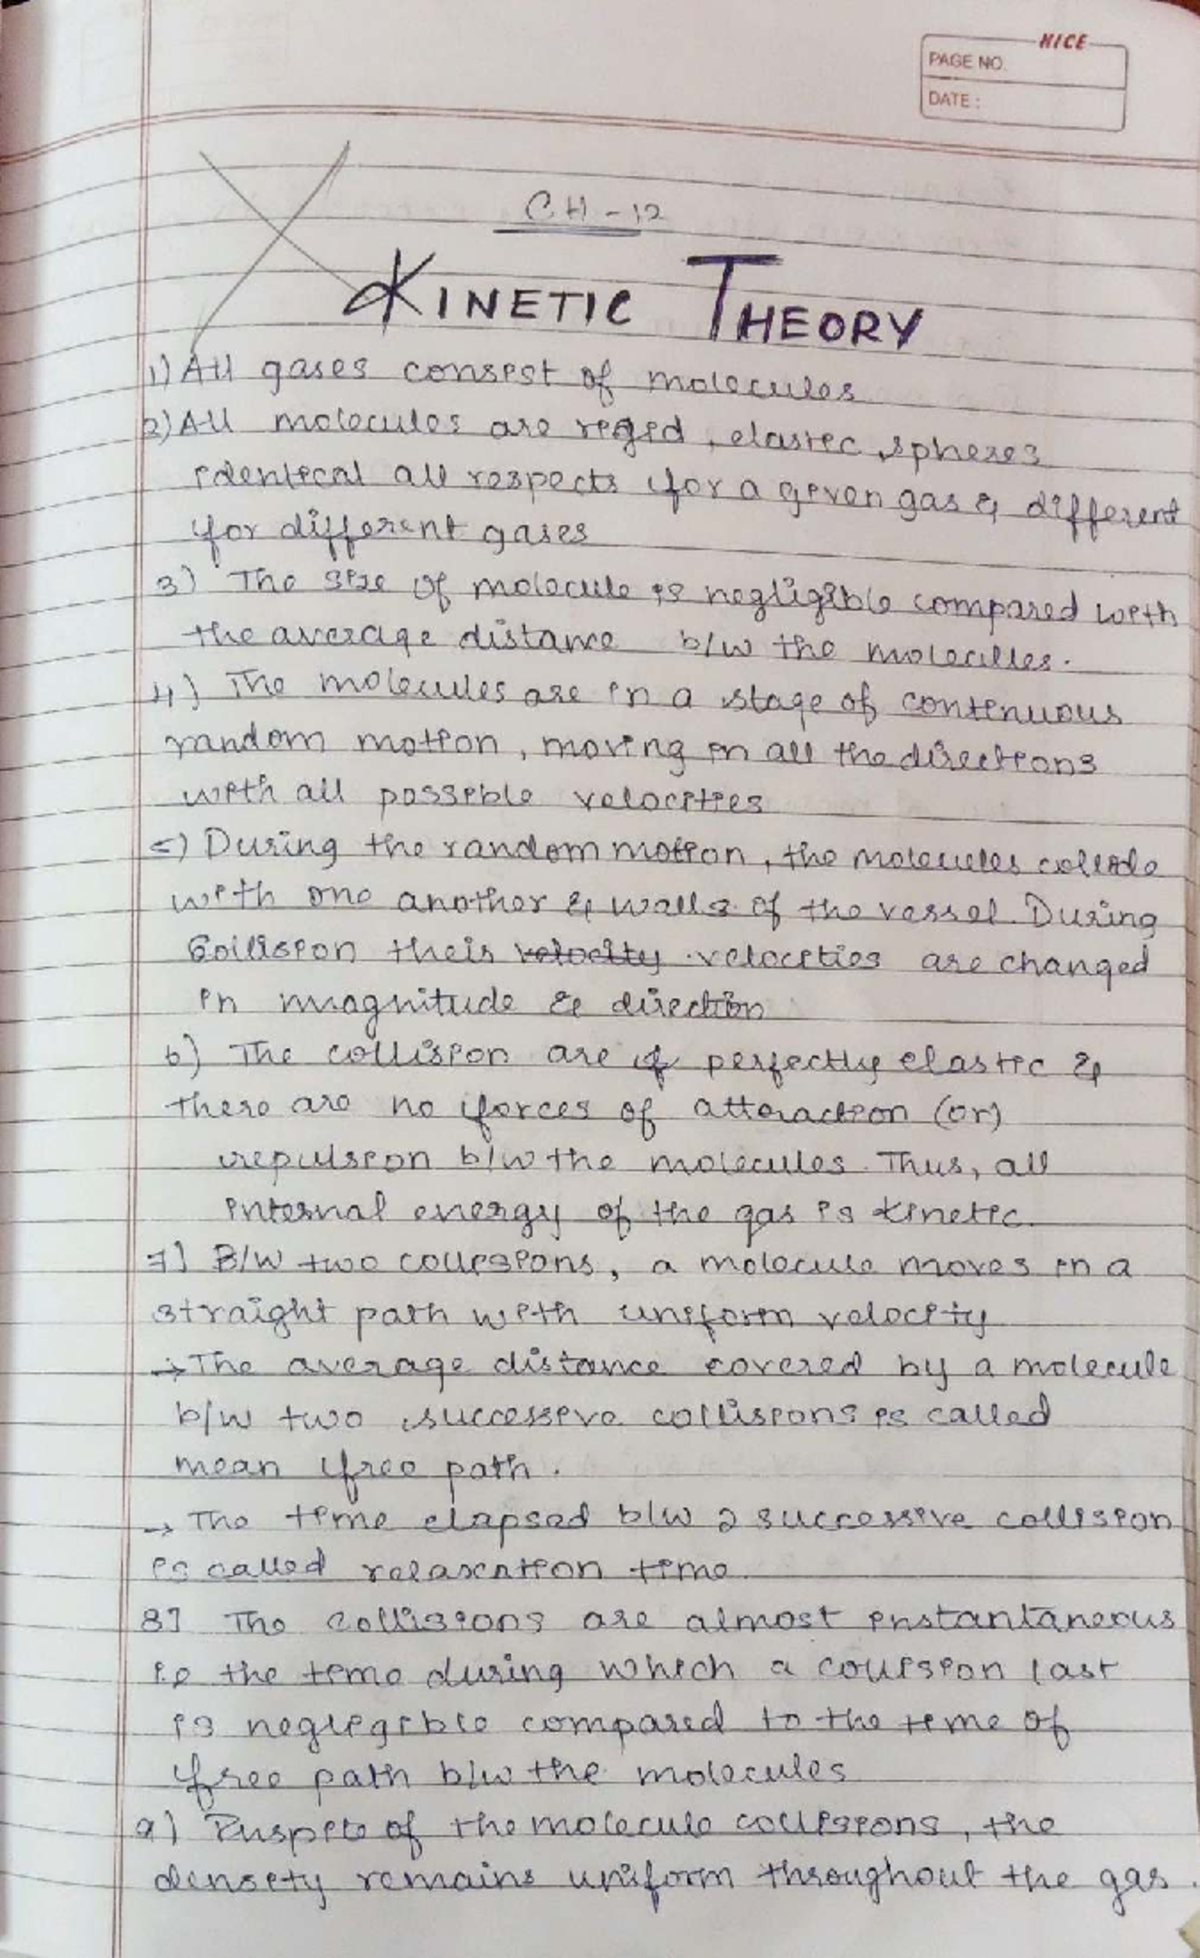 NICE
PAGE NO.
DATE :
CH - 12
KINETIC THEORY
1) All gases consist of molecules
2) All molecules are rigid, elastic, spheres
identical all respects for a given gas & different
for different gases
3) The size of molecule is negligible compared with
the average distance b/w the molecules.
4) The molecules are in a stage of continuous
random motion, moving in all the directions
with all possible velocities
5) During the random motion, the molecules collide
with one another & walls of the vessel. During
Collision their velocity velocities are changed
in magnitude & direction
6) The collision are of perfectly elastic &
there are no forces of atteraction (or)
repulsion b/w the molecules. Thus, all
internal energy of the gas is kinetic.
7] B/W two collisions, a molecule moves in a
straight path with uniform velocity
→ The average distance covered by a molecule
b/w two successive collisions is called
mean free path.
→ The time elapsed b/w 2 successive collision
is called relaxation time.
8] The collisions are almost instantaneous
i.e the time during which a collision last
is negligible compared to the time of
free path b/w the molecules
9) Inspite of the molecule collisions, the
density remains uniform throughout the gas.